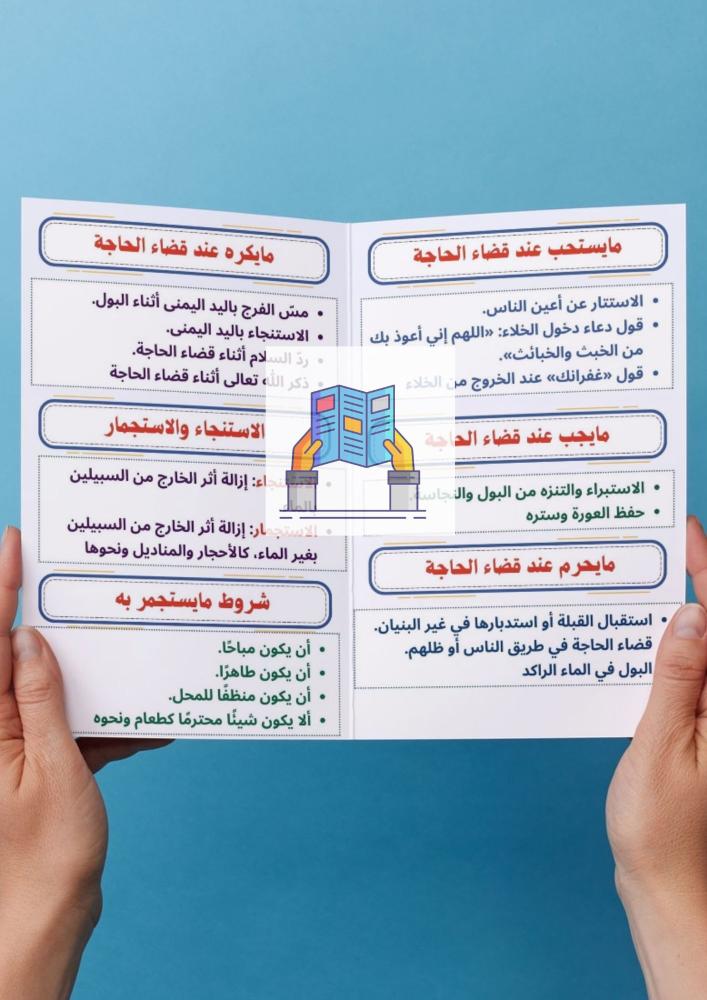 مايستحب عند قضاء الحاجة
• الاستتار عن أعين الناس.
• قول دعاء دخول الخلاء: «اللهم إني أعوذ بك
من الخبث والخبائث».
• قول «غفرانك» عند الخروج من الخلاء
مايجب عند قضاء الحاجة
• الاستبراء والتنزه من البول والنجاسة.
• حفظ العورة وستره
مايحرم عند قضاء الحاجة
• استقبال القبلة أو استدبارها في غير البنيان.
قضاء الحاجة في طريق الناس أو ظلهم.
البول في الماء الراكد
مايكره عند قضاء الحاجة
• مسّ الفرج باليد اليمنى أثناء البول.
• الاستنجاء باليد اليمنى.
• ردّ السلام أثناء قضاء الحاجة.
• ذكر الله تعالى أثناء قضاء الحاجة
الاستنجاء والاستجمار
• الاستنجاء: إزالة أثر الخارج من السبيلين
بالماء.
• الاستجمار: إزالة أثر الخارج من السبيلين
بغير الماء، كالأحجار والمناديل ونحوها
شروط مايستجمر به
• أن يكون مباحًا.
• أن يكون طاهرًا.
• أن يكون منظفًا للمحل.
• ألا يكون شيئًا محترمًا كطعام ونحوه